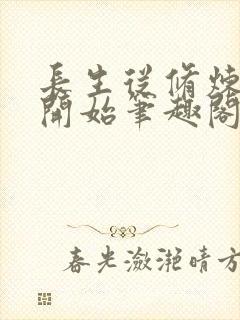 長生從脩煉
開始筆趣閣
春光瀲灧晴方